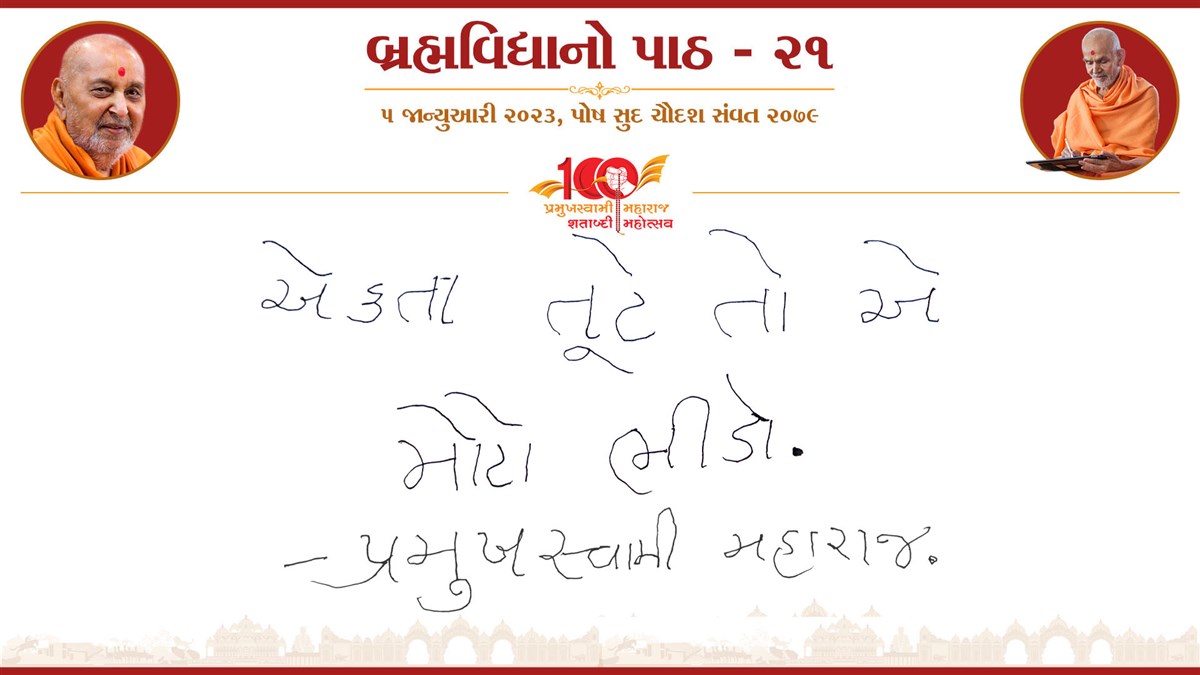 બ્રહ્મવિદ્યાનો પાઠ - ૨૧
૫ જાન્યુઆરી ૨૦૨૩, પોષ સુદ ચૌદશ સંવત ૨૦૭૯
100
પ્રમુખસ્વામી મહારાજ
શતાબ્દી મહોત્સવ
એકતા તૂટે તો એ
મોટો ભીડો.
- પ્રમુખસ્વામી મહારાજ.